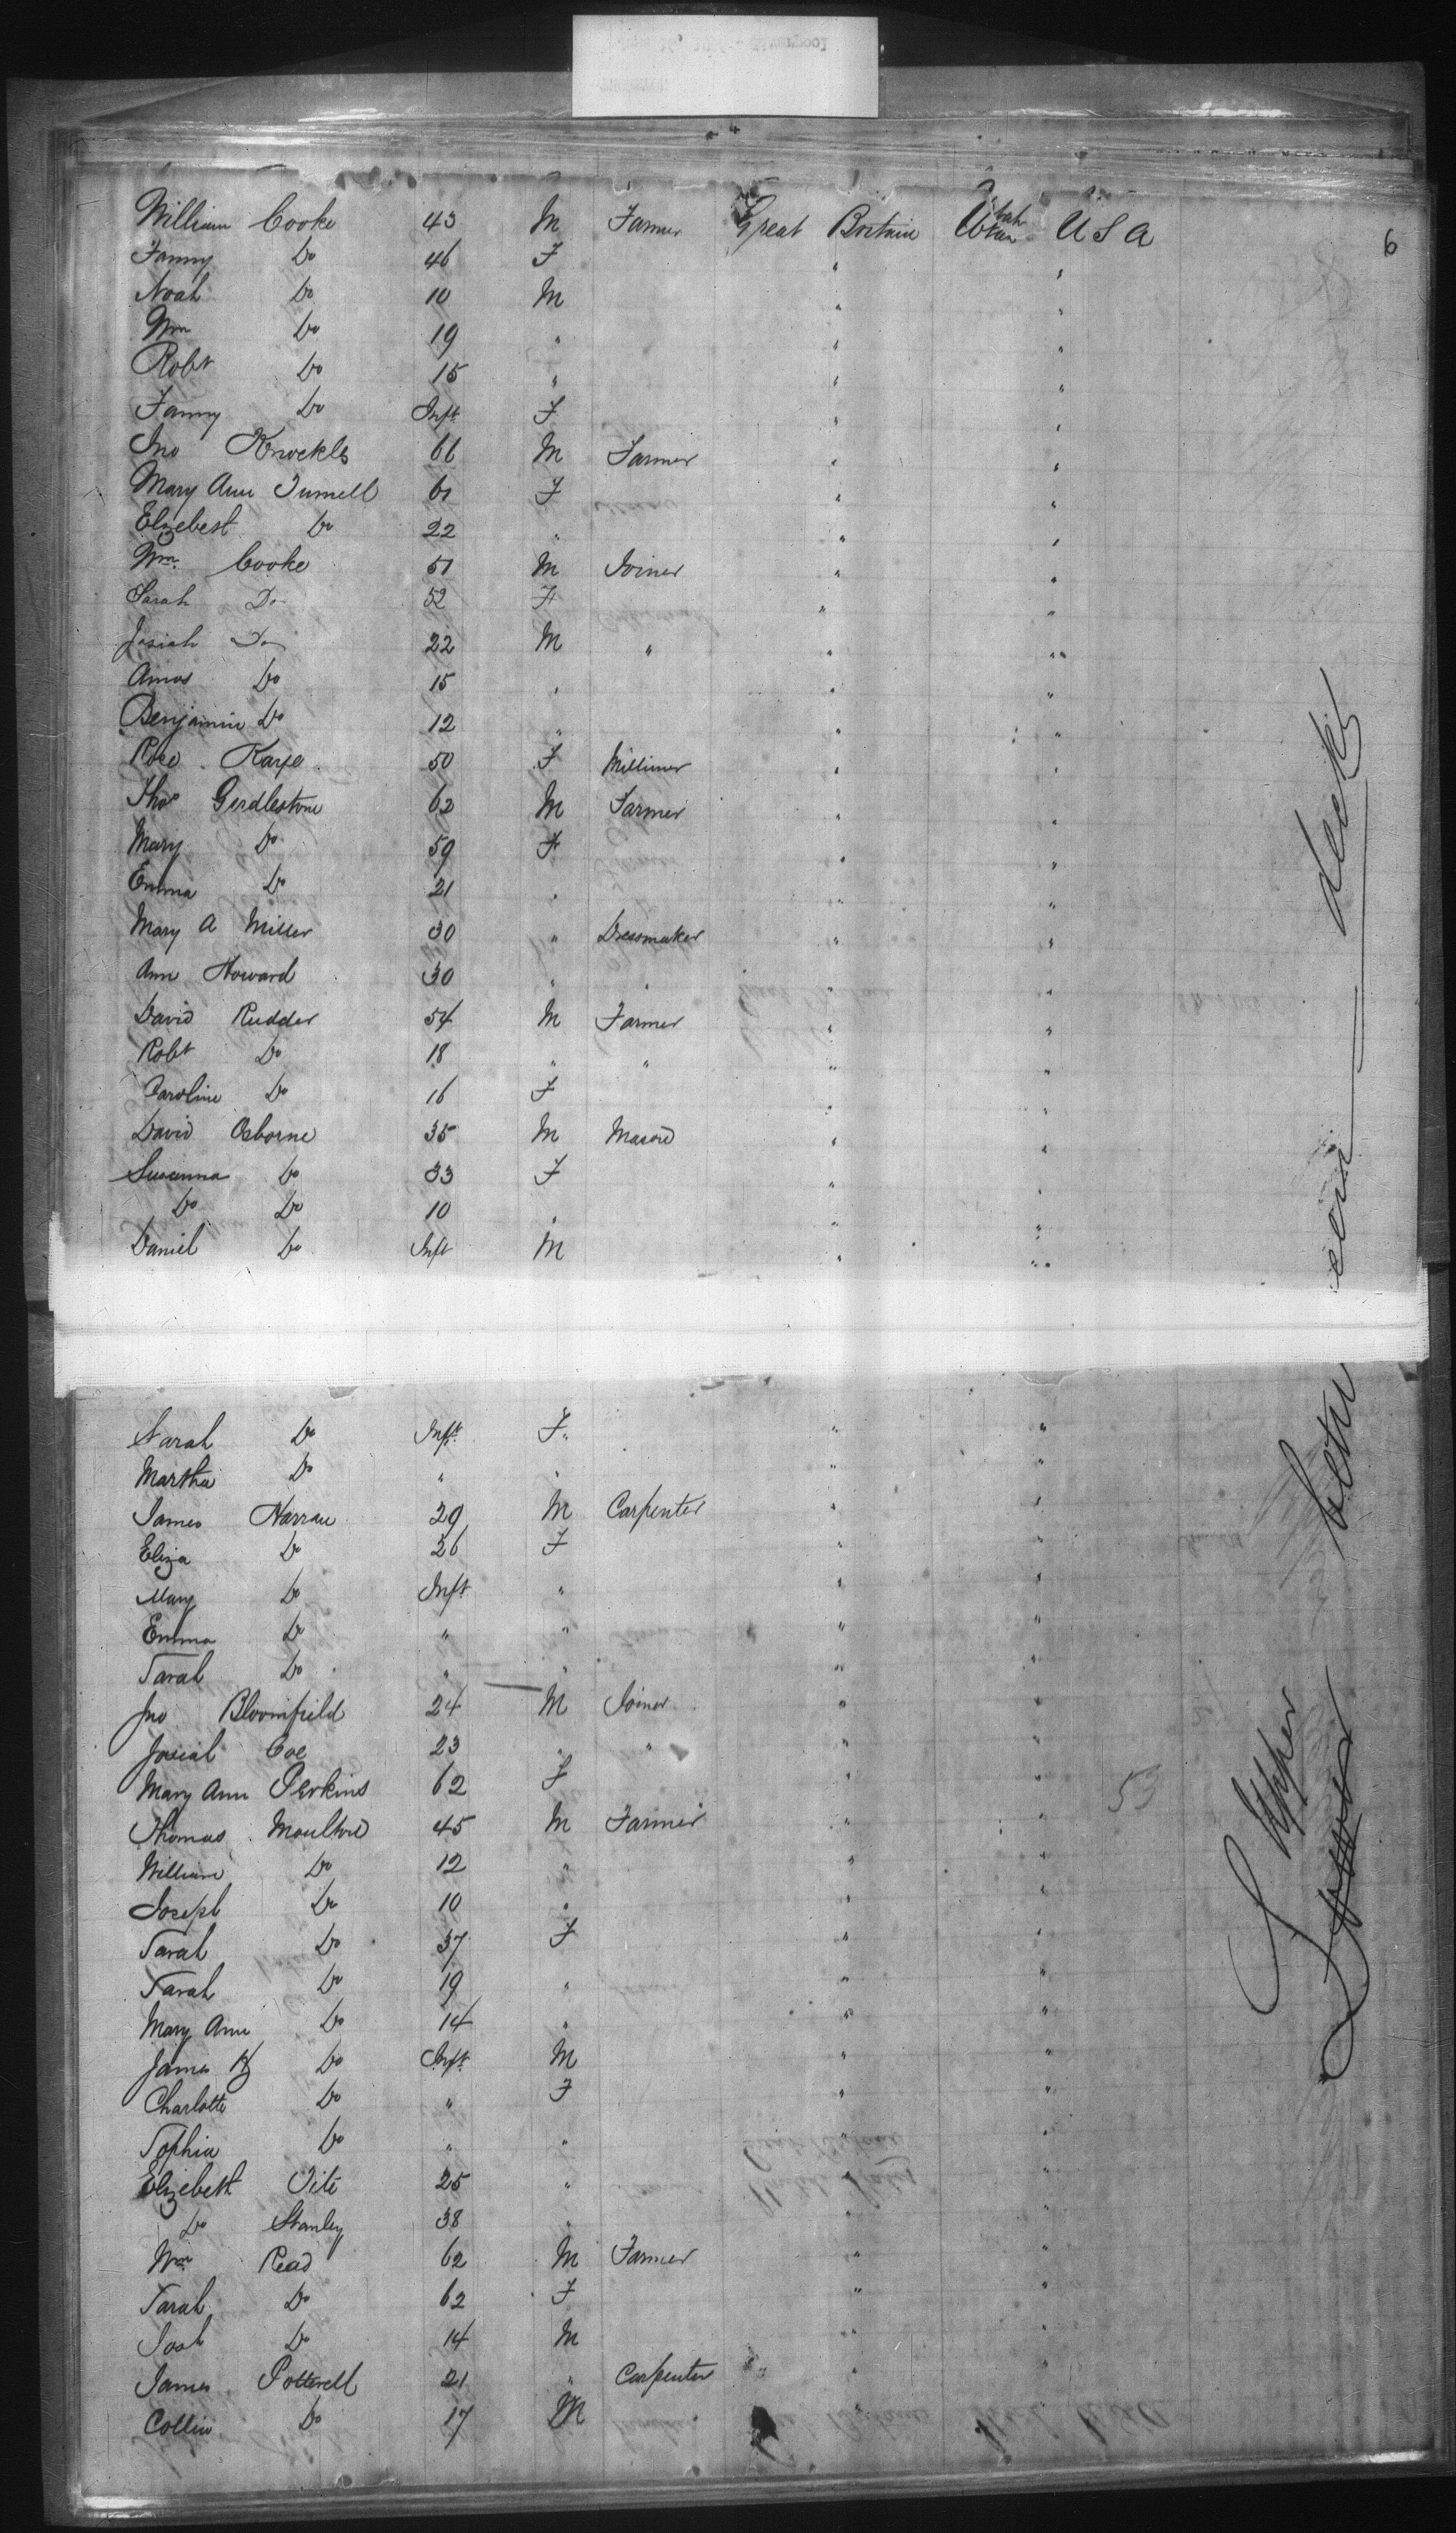 William Cooke 43 M Farmer Great Britain Utah U S A
6
Fanny Do 46 F " "
Noah Do 10 M " "
Wm Do 19 " " "
Robt Do 15 " " "
Fanny Do Inft F " "
Jno Knockles 66 M Farmer " "
Mary Ann Turnell 61 F " "
Elizebest Do 22 " " "
Wm. Cooke 51 M Joiner " "
Sarah Do 52 F " "
Josiah Do 22 M " " "
Amos Do 15 " " "
Benjamin Do 12 " " "
Rose Kaye 50 F Milliner " "
Thos Girdlestone 62 M Farmer " "
Mary Do 59 F " "
Emma Do 21 " " "
Mary A Miller 30 " Dressmaker " "
Ann Howard 30 " " " "
David Rudder 54 M Farmer " "
Robt Do 18 " " " "
Caroline Do 16 F " "
David Osborne 35 M Mason " "
Susanna Do 33 F " "
Do Do 10 " " "
Daniel Do Inft M " "
Sarah Do Inft F " "
Martha Do " " " "
James Harrau 29 M Carpenter " "
Eliza Do 26 F " "
Mary Do Inft " " "
Emma Do " " " "
Sarah Do " " " "
Jno Bloomfield 24 M Joiner " "
Josiah Coe 23 " " " "
Mary Ann Perkins 62 F " " 53
Thomas Moulton 45 M Farmer " "
William Do 12 " " "
Joseph Do 10 " " "
Sarah Do 37 F " "
Sarah Do 19 " " "
Mary Ann Do 14 " " "
James H Do Inft M " "
Charlotte Do " F " "
Sophia Do " " " "
Elizebeth Tite 25 " " "
Do Stanley 38 " " "
Wm Read 62 M Farmer " "
Sarah Do 62 F " "
Do 14 M " "
James Potterell 21 " Carpenter " "
Collin Do 17 M " "
Upper
between decks